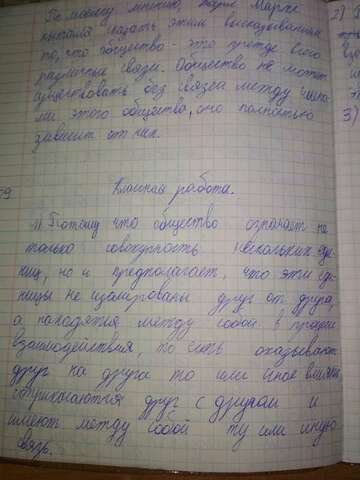 По моему мнению, Карл Маркс
пытался сказать этим высказыванием
то, что общество - это прежде всего
различные связи. Общество не может
существовать без связей между члена-
ми этого общества, оно полностью
зависит от них.
2)
3)
59
Классная работа.
1) Потому что общество означает не
только совокупность нескольких еди-
ниц, но и предполагает, что эти еди-
ницы не изолированы друг от друга,
а находятся между собой в процессе
взаимодействия, то есть оказывают
друг на друга то или иное влияние,
соприкасаются друг с другом и
имеют между собой ту или иную
связь.